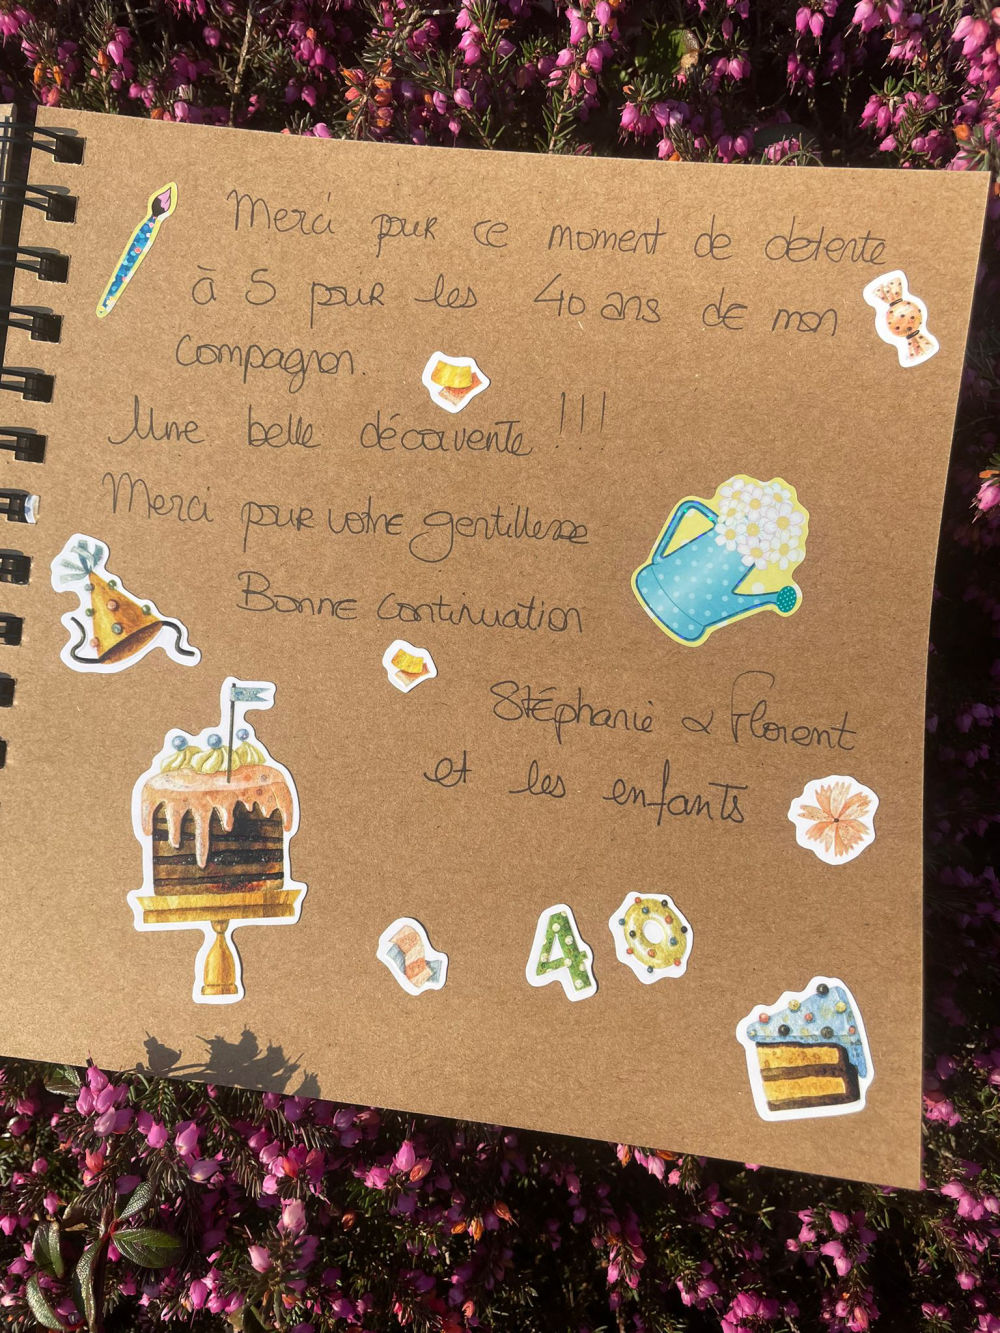 Merci pour ce moment de détente
à 5 pour les 40 ans de mon
compagnon.
Une belle découverte !!!
Merci pour votre gentillesse
Bonne continuation
Stéphanie & Florent
et les enfants
40